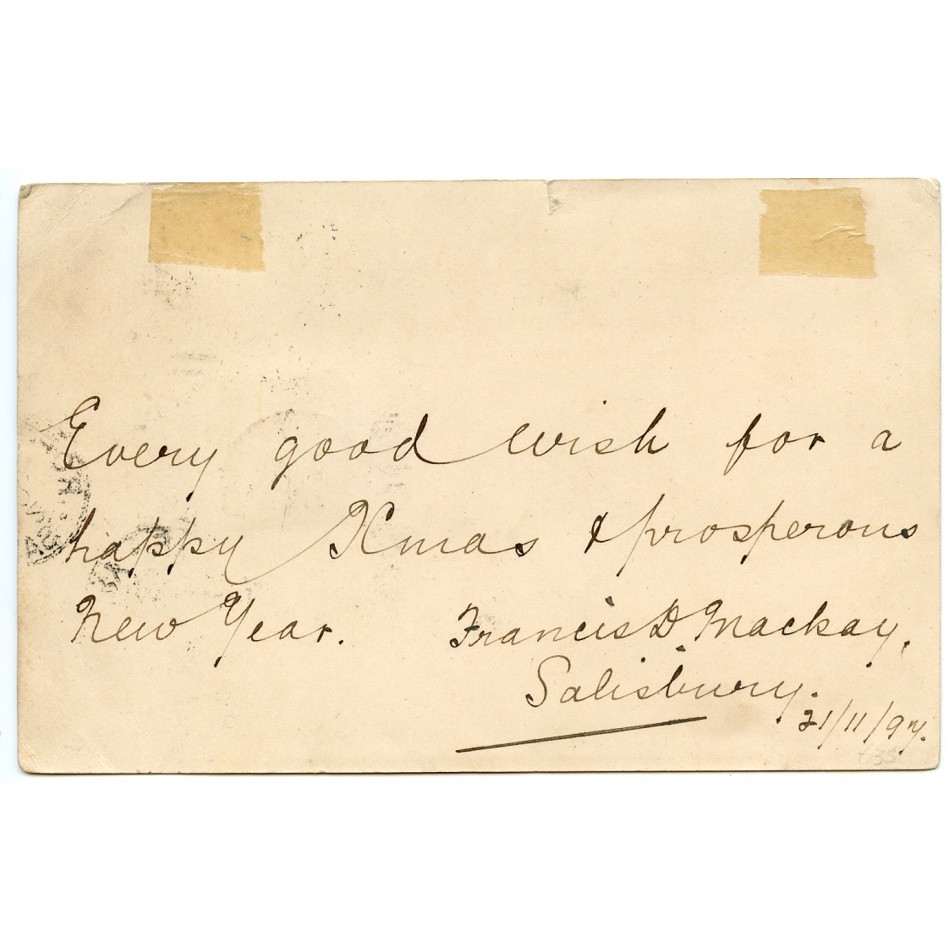 Every good wish for a
happy Xmas & prosperous
New Year. Francis D Mackay,
Salisbury.
21/11/97.